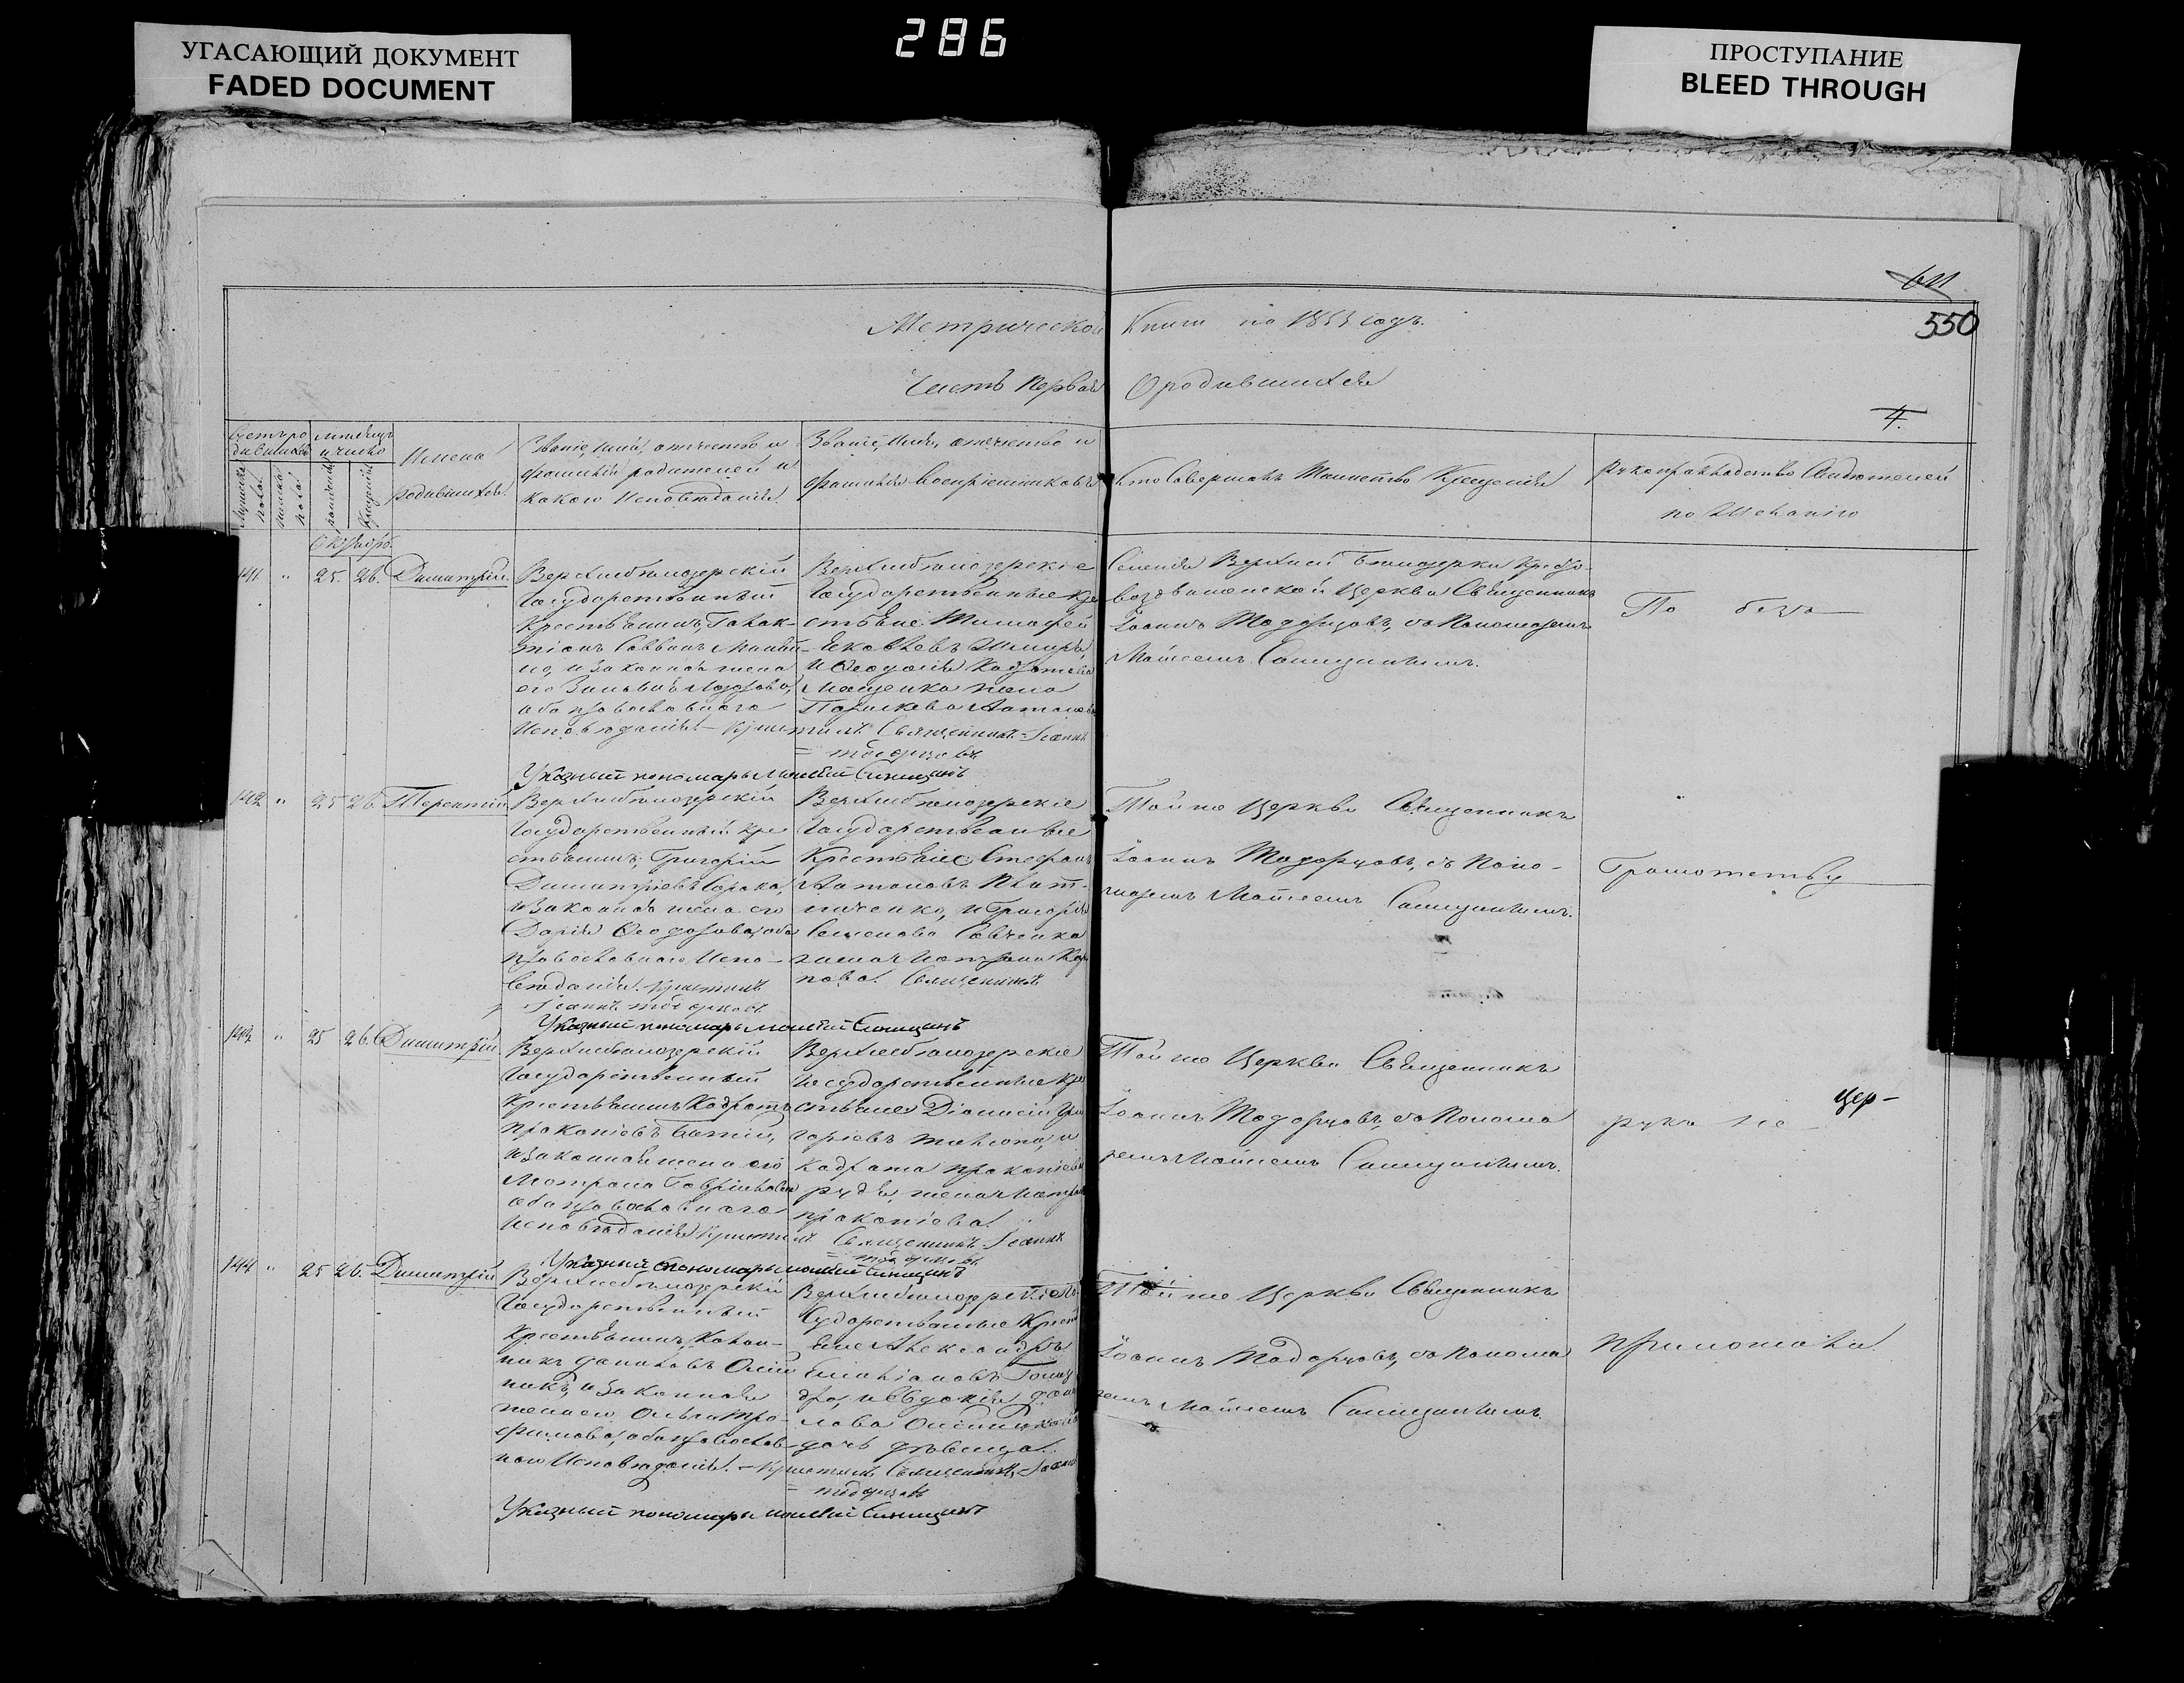 УГАСАЮЩИЙ ДОКУМЕНТ
FADED DOCUMENT
286
ПРОСТУПАНИЕ
BLEED THROUGH
611
550
Метрической Книги на 1853 годъ.
Часть Первая О родившихся
4.
Счетъ родившихся
Мужеска пола.
женска пола.
месяцъ и число
рожденія
крещенія
Имена родившихся.
Званіе, имя, отчество и
фамилія родителей и
какого Исповѣданія.
Званіе, Имя, отечество и
фамилія воспріемниковъ
Кто Совершалъ Таинство Крещенія
Рукоприкладство Свидетелей
по Желанію
Октября.
141. " 25. 26. Димитрій.
Верхнебѣлозерскій
Государственный
Крестьянинъ,
и законная жена
его
оба православного
Исповѣданія. – Крестилъ Священникъ Іоаннъ
Тодорцовъ
Указный пономарь Моисей Синицинъ
Верхнебѣлозерскіе
Государственные кре
стьяне Тимофей
Яковлевъ
жена
Селенія Верхней Белозерки Кресто
воздвиженской Церкви Священникъ
Іоаннъ Тодорцовъ, съ Пономаремъ
Моисеемъ Синицинымъ.
По безъ
142 " 25 26. Терентій
Верхнебѣлозерскій
Государственный кре
стьянинъ, Григорій
Димитріевъ Сорока,
и законная жена его
Дарія Феодорова, оба
православного Испо-
вѣданія. Крестилъ
Іоаннъ Тодорцовъ
Указный пономарь Моисей Синицинъ
Верхнебѣлозерскіе
Государственные
Крестьяне Стефанъ
Антоновъ
и Григорія
Семенова Савченка
жена Матрона Кар
пова. Священникъ
Той же Церкви Священникъ
Іоаннъ Тодорцовъ, съ Поно-
маремъ Моисеемъ Синицинымъ.
Грамотству
143 " 25 26. Димитрій.
Верхнебѣлозерскій
Государственный
Крестьянинъ Кодратъ
Прокопіевъ
и законная жена его
Матрона Гавріилова
оба православного
Исповѣданія Крестилъ Священникъ Іоаннъ
Тодорцовъ
Указный пономарь Моисей Синицинъ
Верхнебѣлозерскіе
Государственные кре
стьяне Діонисій Гри
горіевъ и
Кодрата Прокопіева
жена Матрона
Прокопіева.
Той же Церкви Священникъ
Іоаннъ Тодорцовъ, съ Понома
ремъ Моисеемъ Синицинымъ.
рука не
Цер-
144 " 25 26. Димитрій
Верхнебѣлозерскій
Государственный
Крестьянинъ,
Даниловъ
и законная
жена его Ольга Тро-
фимова, оба православ-
ного Исповѣданія. – Крестилъ Священникъ Іоаннъ
Тодорцовъ
Указный пономарь Моисей Синицинъ
Верхнебѣлозерскіе Го
сударственные Кресть
яне Александръ
Емиліановъ
и Евдокія Дани
лова
дочь дѣвица.
Той же Церкви Священникъ
Іоаннъ Тодорцовъ, съ Понома
ремъ Моисеемъ Синицинымъ.
приложили